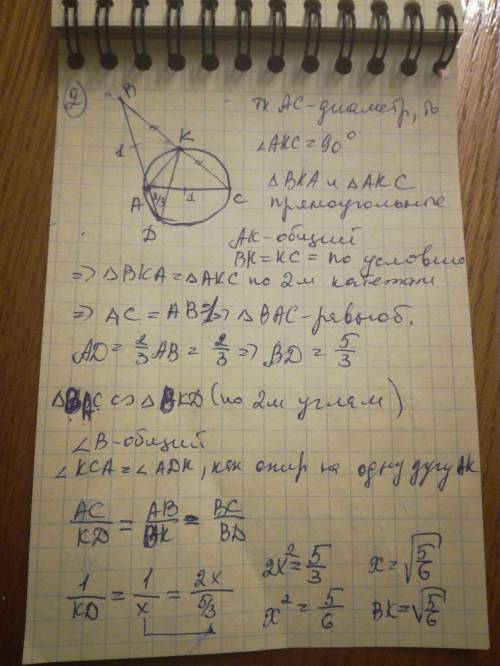 2
B
K
1
A
2/3
1
C
D
тк AC-диаметр, то
∠AKC = 90°
△BKA и △AKC
прямоугольные
AK-общий
BK = KC = по условию
=> △BKA = △AKC по 2м катетам
=> AC = AB = 1 => △BAC-равноб.
AD = 2/3 AB = 2/3 => BD = 5/3
△BAC ∽ △BKD (по 2м углам)
∠B-общий
∠KCA = ∠ADK, как опир на одну дугу AK
AC/KD = AB/BK = BC/BD
1/KD = 1/x = 2x/(5/3)
2x² = 5/3
x = √5/6
x² = 5/6
BK = √5/6